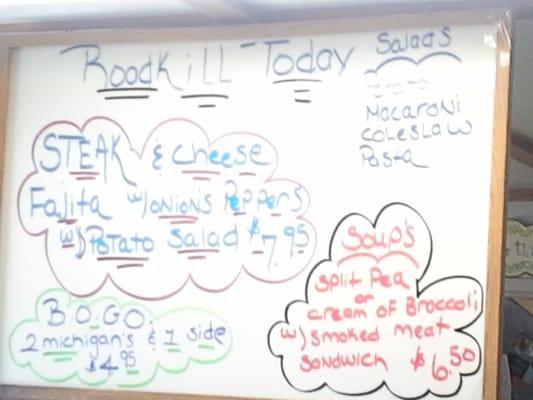 RoadKiLL - Today
STEAK & cheese
Fajita w/onions Peppers
w/Potato Salad $7.95
B.O.G.O.
2 michigan's & 1 side
$4.95
Salads
Macaroni
coleslaw
Pasta
Soup's
split Pea
or
cream of Broccoli
w/smoked meat
sandwich $6.50